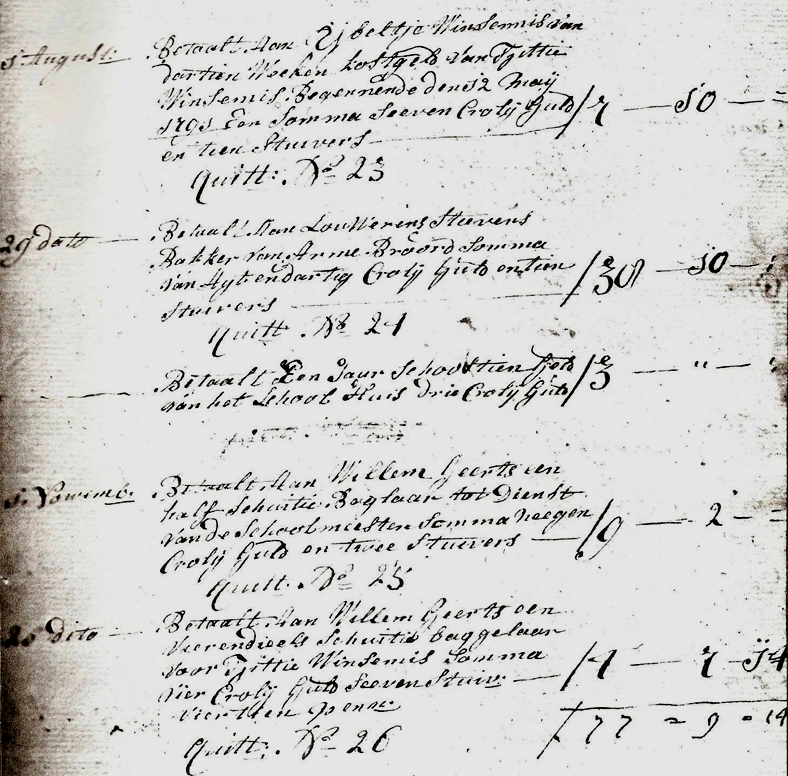 5 August: Betaalt Aan Ijbeltje Winsemis van
dartien Weeken kostgeld van Tjittie
Winsemis. Begennende den 12 Maij
1791 Een Somma Seeven Crolij Guld / 7 — 10 — =
en tien Stuivers
Quitt: No 23
29 dato — Betaalt Aan Louwerins Stevens
Bakker van Arme Broord Somma
van Agtendartig Crolij Guld en tien / 38 — 10 —
Stuivers
Quitt No 24
— Betaalt Een Jaar Schoostien Geld
van het School Huis drie Crolij Guld / 3 — " —
Novemb: Betaalt Aan Willem Geerts een
half Schuitie Baglaar tot Dienst
van de Schoolmeester Somma neegen / 9 — 2 - =
Crolij Guld en twee Stuivers —
Quitt. No 25
dito — Betaalt Aan Willem Geerts een
vierendieels Schuitie baggelaar
voor Tjittie Winsemis Somma / 4 — 7 — 14
vier Crolij Guld Seeven Stuiv: —
viertien penn:
/ 77 = 9 = 14
Quitt: No 26